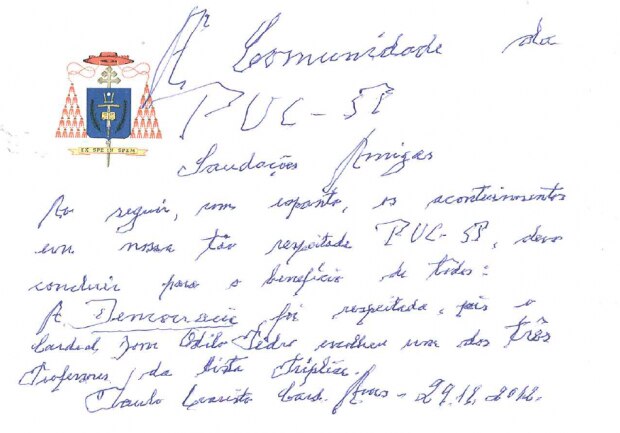 À Comunidade da
PUC-SP
Saudações Amigas
EX SPE IN SPEM
Ao seguir, com espanto, os acontecimentos
em nossa tão respeitada PUC-SP, devo
concluir para o benefício de todos:
A Democracia foi respeitada, pois o
Cardeal Dom Odilo Pedro escolheu um dos três
Professores, da lista tríplice.
Paulo Evaristo Card. Arns - 29.12.2012.